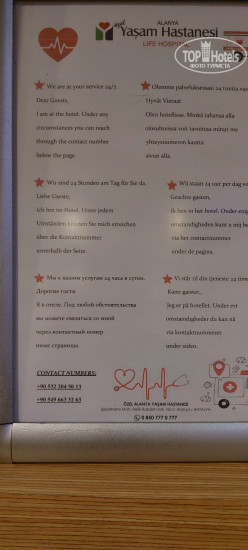 ALANYA
özel Yaşam Hastanesi
LIFE HOSPITAL
TOP Hotels
ФОТО ТУРИСТА
We are at your service 24/7.
Dear Guests,
I am at the hotel. Under any
circumstances you can reach
through the contact number
below the page.
Olemme palveluksessan 24 tuntia vuo
Hyvät Vieraat
Olen hotellissa. Minkä tahansa alla
olosuhteissa voit tavoittaa minut mu
yhteysnumeron kautta
sivun alla.
Wir sind 24 Stunden am Tag für Sie da.
Liebe Gaeste,
Ich bin im Hotel. Unter jedem
Umständen können Sie mich erreichen
über die Kontaktnummer
unterhalb der Seite.
Wij staan 24 uur per dag vo
Geachte gasten,
Ik ben in het hotel. Onder enig
omstandigheden kunt u mij be
via het contactnummer
onder de pagina.
Мы к вашим услугам 24 часа в сутки.
Дорогие гости
Я в отеле. Под любой обстоятельства
вы можете связаться со мной
через контактный номер
ниже страницы.
Vi står til din tjeneste 24 time
Kære gæster,
Jeg er på hotellet. Under evt
omstændigheder du kan nå
via kontaktnummeret
under siden.
CONTACT NUMBERS:
+90 532 204 50 13
+90 549 663 32 63
ÖZEL ALANYA YAŞAM HASTANESİ
0 850 777 0 777